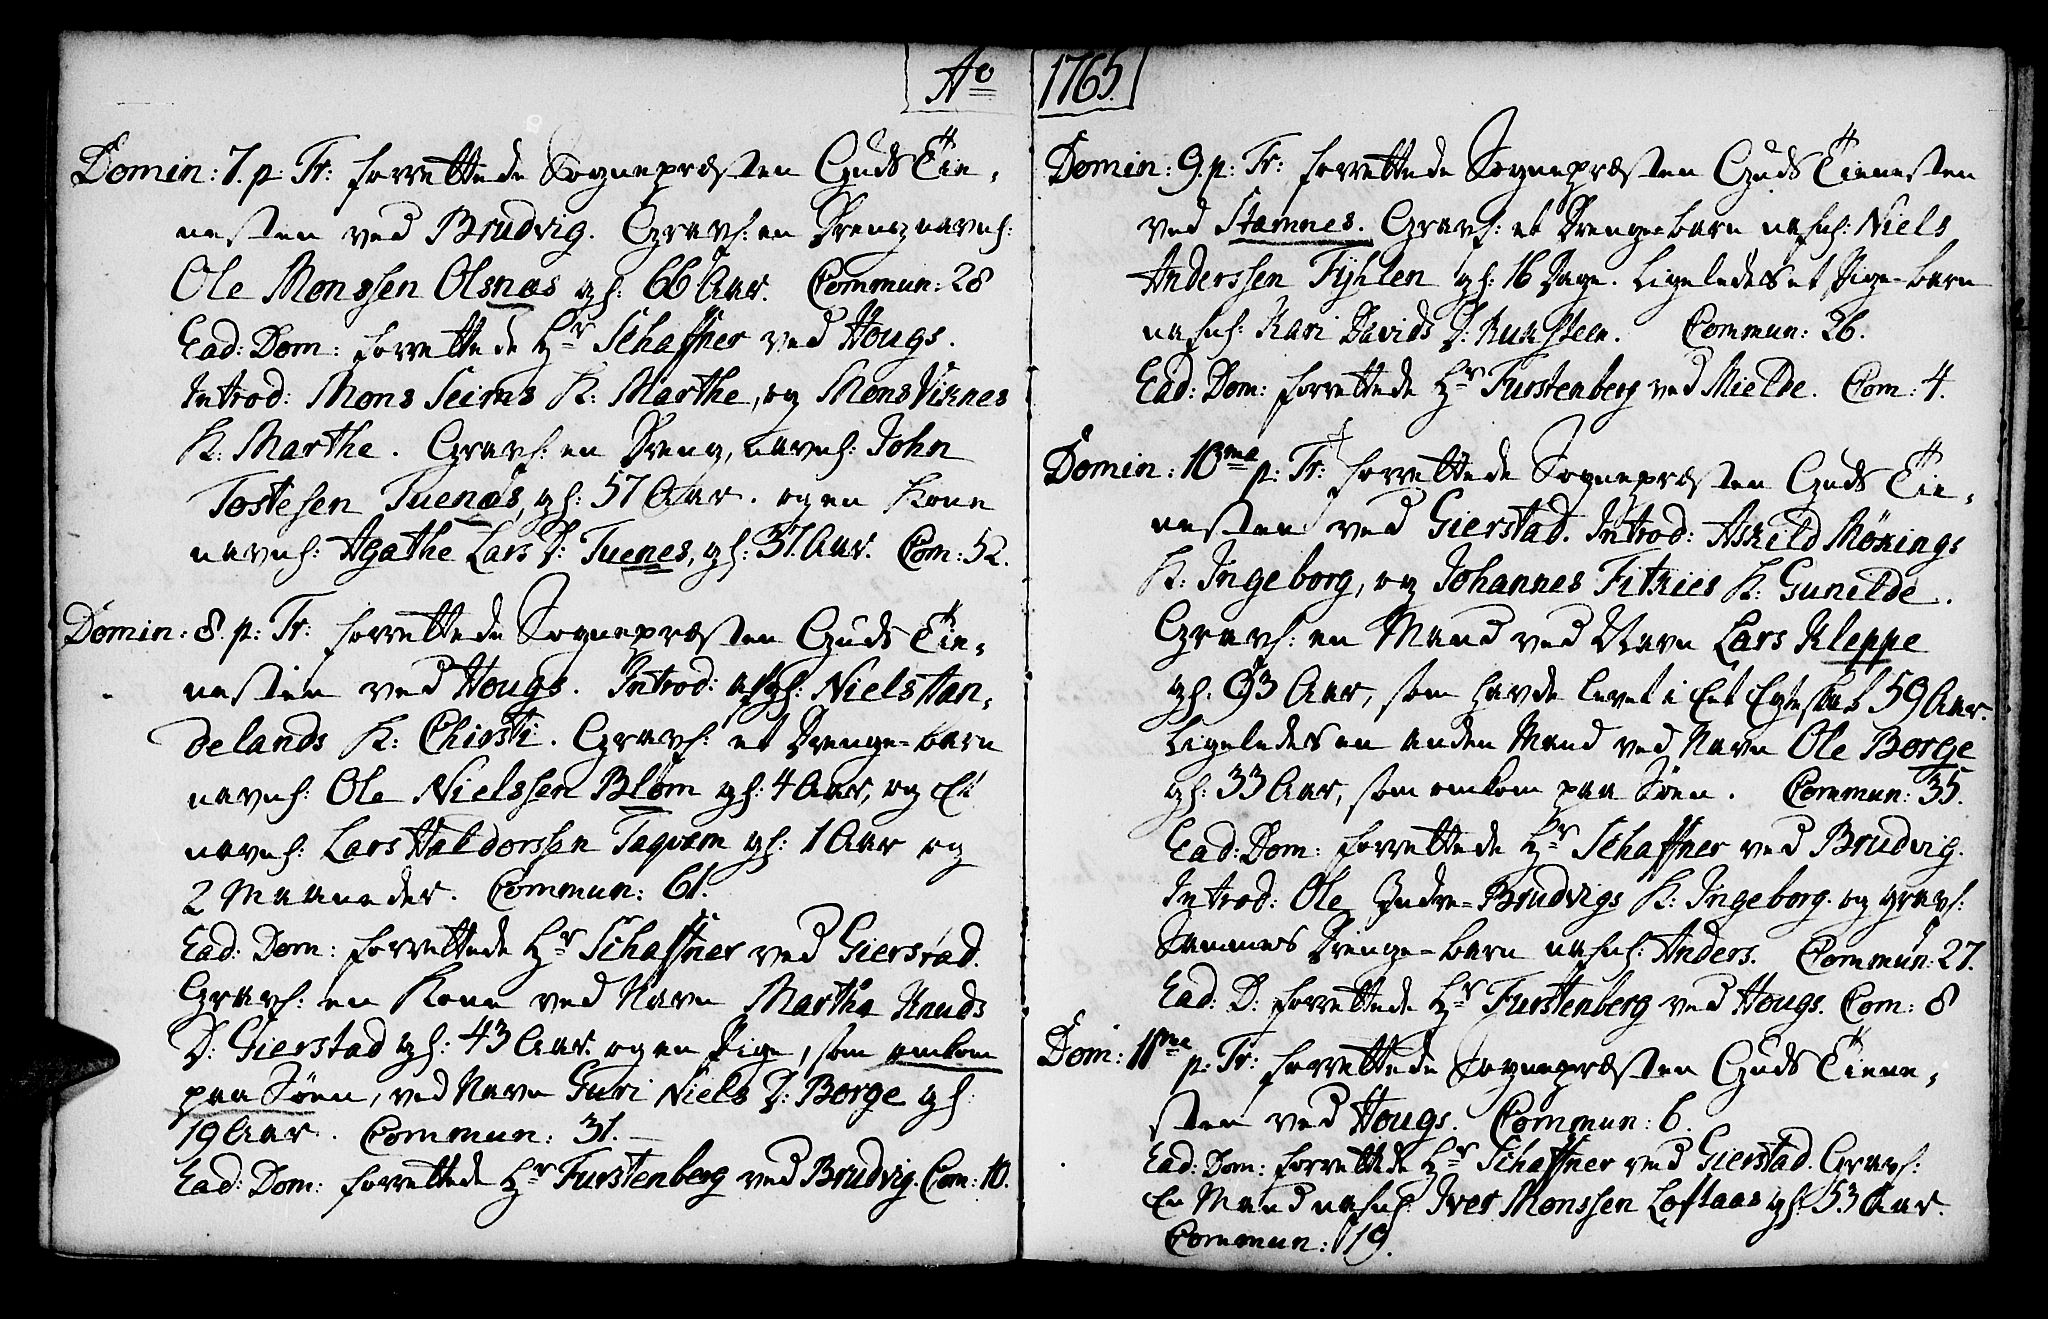 Ao 1765.
Domin: 7. p: Tr: forrettede Sognepræsten Guds Tie-
nesten ved Brudvig. Gravf: en Dreng navnl:
Ole Monssen Olsnæs gl: 66 Aar. Commun: 28
Ead: Dom: forrettede Hr Schaffner ved Hougs.
Introd: Mons Seims K: Marthe, og Mons Viknes
K: Marthe. Gravf: en Dreng, navnl: John
Tostesen Tuenæs, gl: 57 Aar. og en Kone
navnl: Agathe Lars D: Tuenes, gl: 37. Aar. Com: 52.
Domin: 8. p: Tr: forrettede Sognepræsten Guds Tie-
nesten ved Hougs. Introd: Niels Han-
delands K: Chirsti. Gravf: et Drenge-barn
navnl: Ole Nielssen Blom gl: 4 Aar, og Et
navnl: Lars Haldorssen Taqvam gl: 1 Aar og
2 Maaneder. Commun: 61.
Ead: Dom: forrettede Hr Schaffner ved Gierstad.
Gravf: en Kone ved Navn Martha Knuds
D: Gierstad gl: 43 Aar. og en Pige, som omkom
paa Søen, ved Navn Guri Niels D: Borge gl:
19 Aar. Commun: 31.
Ead: Dom: forrettede Hr Furstenberg ved Brudvig. Com: 10.
Domin: 9. p: Tr: forrettede Sognepræsten Guds Tienesten
ved Stamnes. Gravf: et Drenge-barn nafnl: Niels
Anderssen Fyhlen gl: 16 Dage. Ligeledes et Pige-barn
nafnl: Kari Davids D: Commun: 26.
Ead: Dom: forrettede Hr Furstenberg ved Mielde. Com: 4.
Domin: 10me p: Tr: forrettede Sognepræsten Guds Tie-
nesten ved Gierstad. Introd: Askild Möxings
K: Ingeborg, og Johannes Fitkies K: Gunilde.
Gravf: en Mand ved Navn Lars Kleppe
gl: 93 Aar, som havde levet i Eet Egteskab 59 Aar.
Ligeledes en anden Mand ved Navn Ole Borge
gl: 33 Aar, som omkom paa Søen. Commun: 35.
Ead: Dom: forrettede Hr Schaffner ved Brudvig.
Introd: Ole Indre-Brudvigs K: Ingeborg. og gravf:
Sammes Drenge-barn nafnl: Anders. Commun: 27.
Ead: D: forrettede Hr Furstenberg ved Hougs. Com: 8
Dom: 11me p: Tr: forrettede Sognepræsten Guds Tiene-
sten ved Hougs. Commun: 6.
Ead: Dom: forrettede Hr Schaffner ved Gierstad. Gravf:
En Mand nafnl: Iver Monssen Loftaas gl: 53 Aar.
Commun: 119.